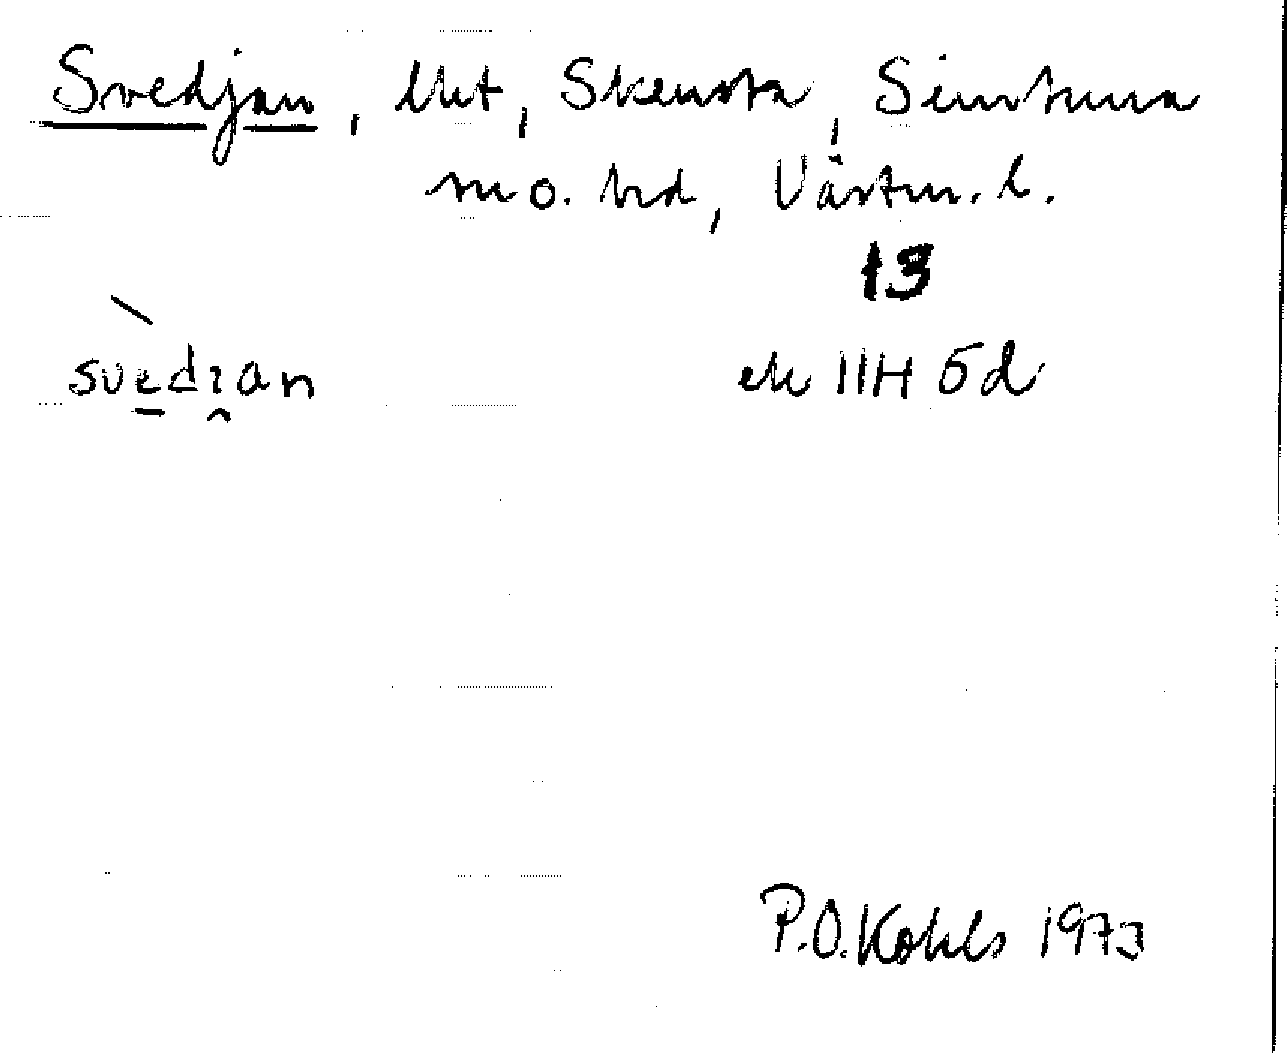 Svedjan, lht, Skensta, Simtuna
sn o. hd, Västm. l.
13
svedı̯an
ek 11H 5d
P.O. Kohls 1973